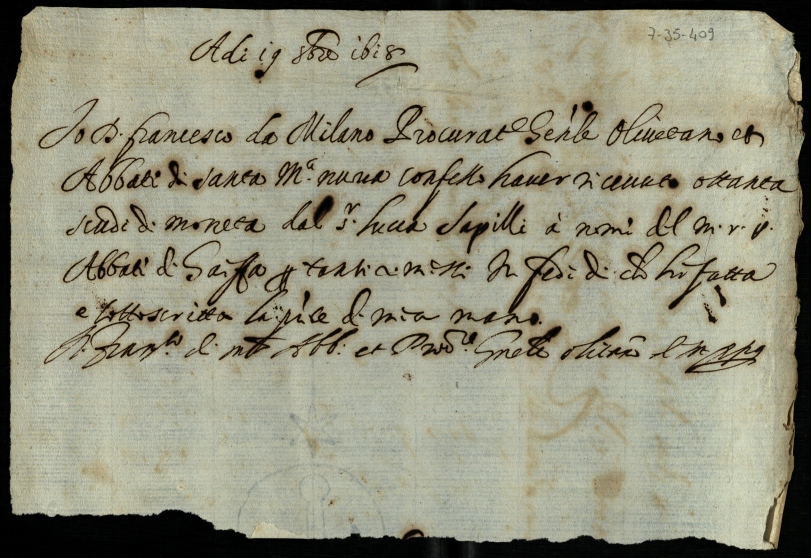 7-35-409
Adi 19 8bre 1618
Io D. Francesco da Milano Procurat.e Gen'le Olivetano et
Abbate di Santa M.a nuova confesso haver ricevuto ottanta
scudi di moneta dal s.r Lucca Sapilli à nome del m. r. p.
Abbate di tanti In fede di ch' hò fatta
e sottoscritta la pñte di mia mano.
D. Fran.co di Abb. et Proc.re Gñele olivan mano